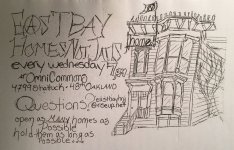 EAST BAY
HOMES NOT JAILS
every wednesday
@ Omni Commons
4799 Shattuck · 48th OAKLAND
Questions:
@riseup.net
open as MANY homes as
Possible
hold them as long as
Possible
home